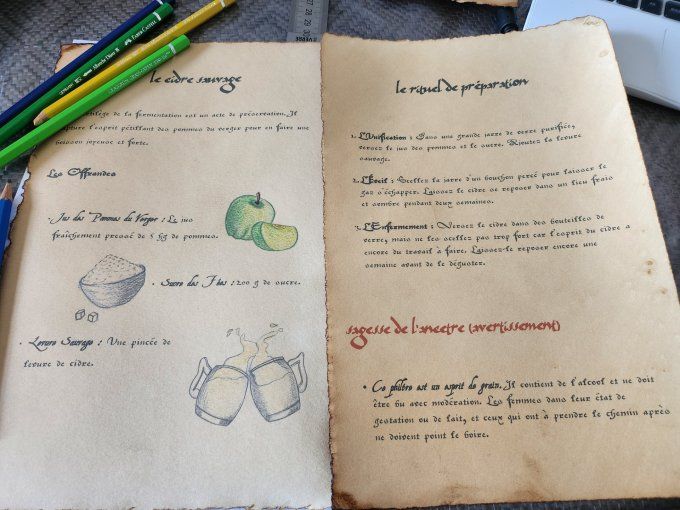 le cidre sauvage
de la fermentation est un acte de préservation. Il
capture l'esprit pétillant des pommes du verger pour en faire une
boisson joyeuse et forte.
Les Offrandes
• Jus des Pommes du Verger : Le jus
fraîchement pressé de 5 kg de pommes.
• Sucre des Fées : 200 g de sucre.
• Levure Sauvage : Une pincée de
levure de cidre.
le rituel de préparation
1. L'Unification : Dans une grande jarre de verre purifiée,
versez le jus des pommes et le sucre. Ajoutez la levure
sauvage.
2. L'Éveil : Scellez la jarre d'un bouchon percé pour laisser le
gaz s'échapper. Laissez le cidre se reposer dans un lieu frais
et sombre pendant deux semaines.
3. L'Enfermement : Versez le cidre dans des bouteilles de
verre, mais ne les scellez pas trop fort car l'esprit du cidre a
encore du travail à faire. Laissez-le reposer encore une
semaine avant de le déguster.
sagesse de l'ancêtre (avertissement)
• Ce philtre est un esprit de grain. Il contient de l'alcool et ne doit
être bu avec modération. Les femmes dans leur état de
gestation ou de lait, et ceux qui ont à prendre le chemin après
ne doivent point le boire.
27 28 29 30